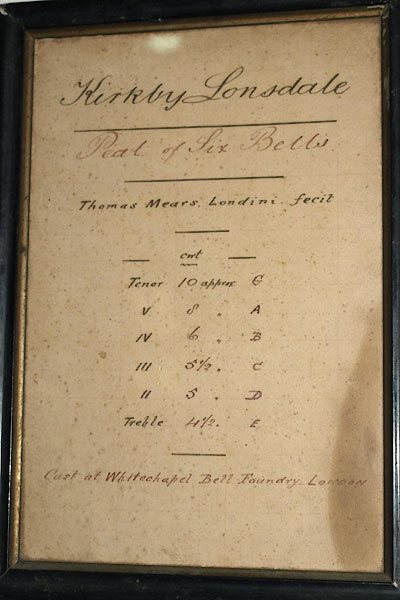 Kirkby Lonsdale
Peal of Six Bells
Thomas Mears. Londini. fecit
cwt
Tenor 10 appox G
V 8 " A
IV 6 " B
III 5½ " C
II 5 " D
Treble 4½ . E
Cast at Whitechapel Bell Foundry. LONDON